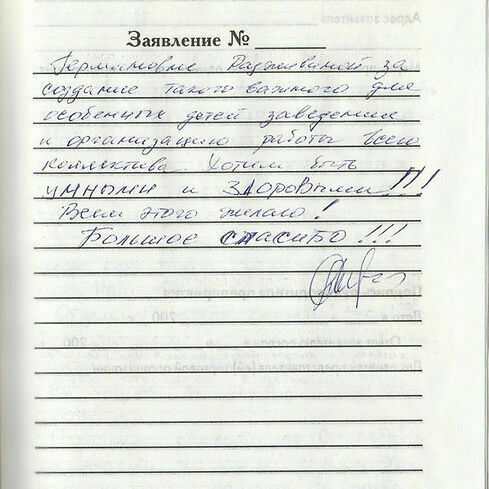 Заявление № ________
Германовне за
создание такого важного для
особенных детей заведения
и организацию работы всего
коллектива. Хотим быть
умными и здоровыми!!!
Всем этого желаю!
Большое спасибо!!!